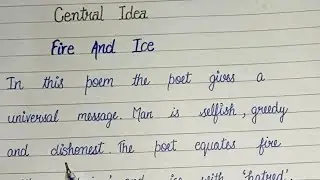 Central Idea
Fire And Ice
In this poem the poet gives a
universal message. Man is selfish, greedy
and dishonest. The poet equates fire
and ice with 'hatred'.